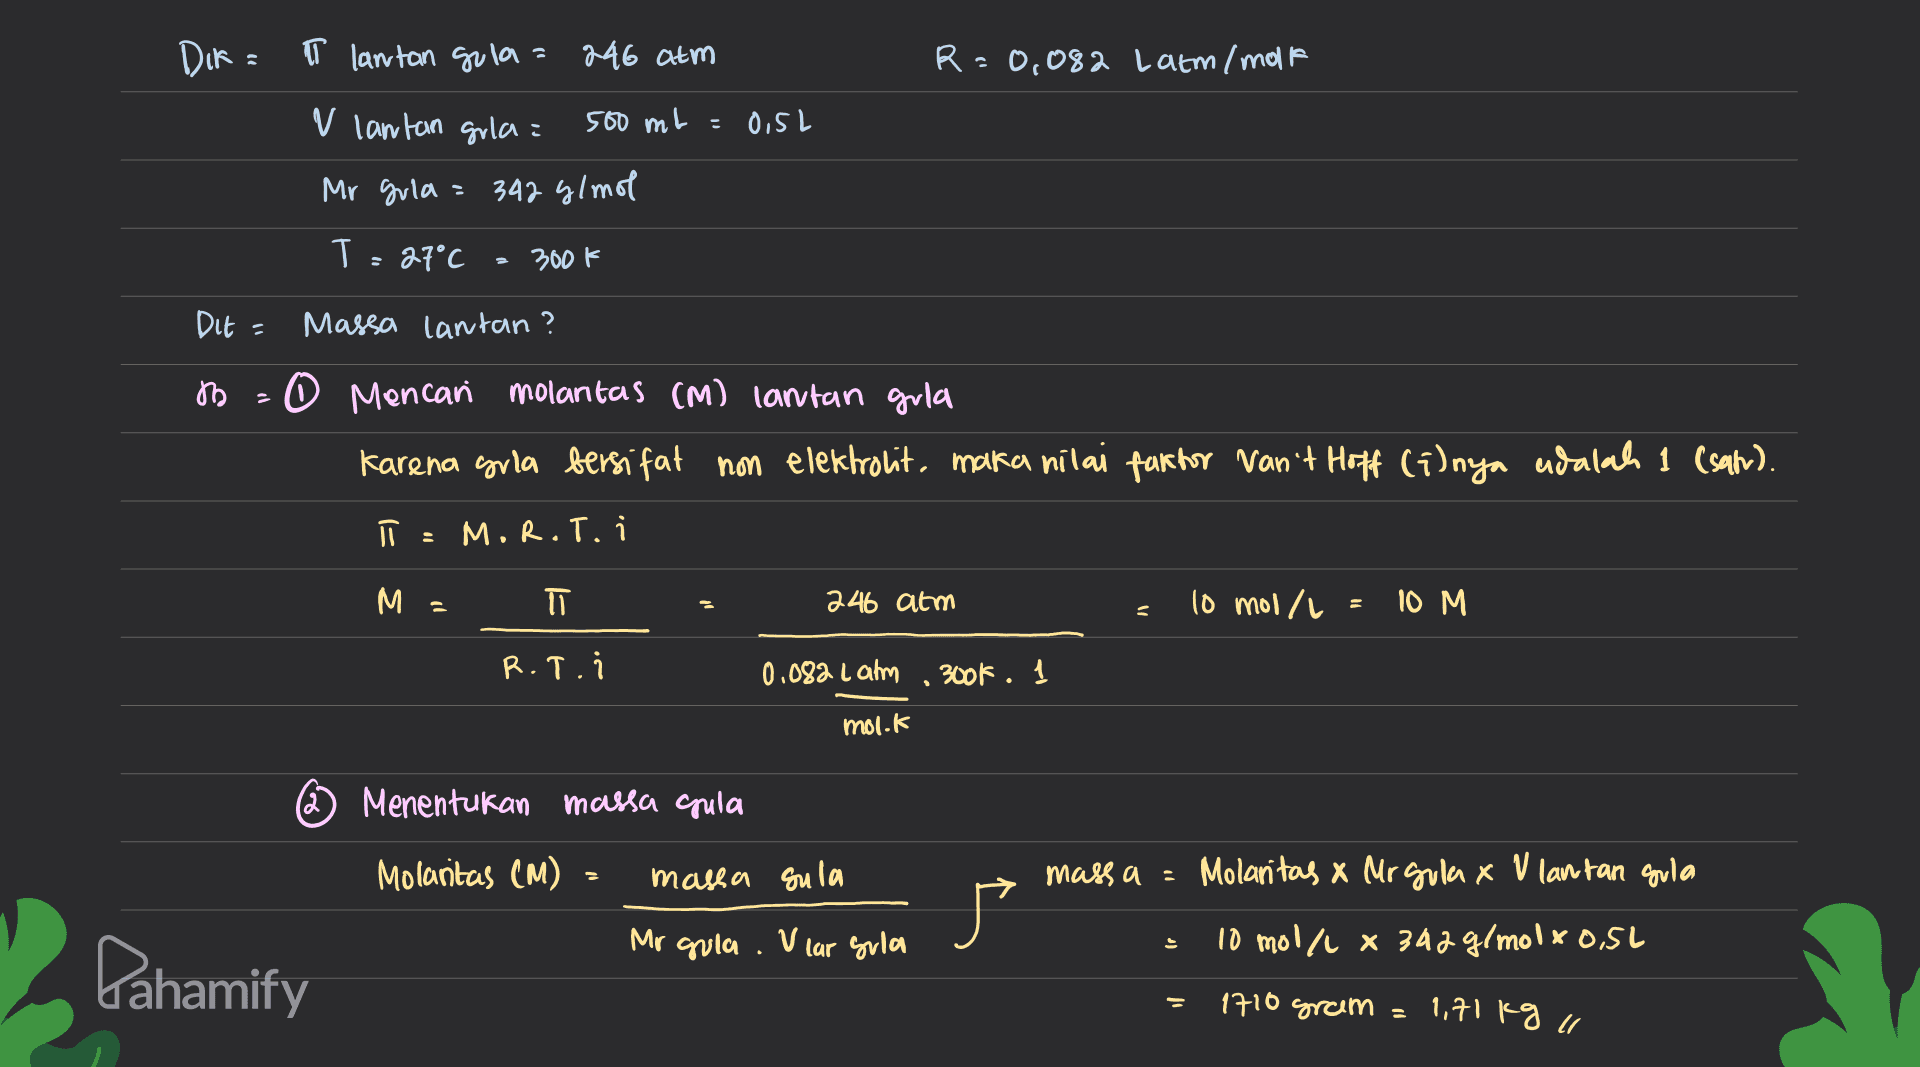 Dik = π larutan gula = 246 atm R = 0,082 L atm/mol K
V larutan gula = 500 mL = 0,5 L
Mr gula = 342 g/mol
T = 27°C = 300 K
Dit = Massa larutan?
Jb = ① Mencari molaritas (M) larutan gula
Karena gula bersifat non elektrolit, maka nilai faktor Van't Hoff (i)nya adalah 1 (satu).
π = M . R . T . i
M = π / R . T . i = 246 atm / 0,082 L atm/mol.K . 300K . 1 = 10 mol/L = 10 M
② Menentukan massa gula
Molaritas (M) = massa gula / Mr gula . V lar gula → massa = Molaritas x Mr gula x V larutan gula
= 10 mol/L x 342 g/mol x 0,5 L
= 1710 gram = 1,71 kg //
Pahamify